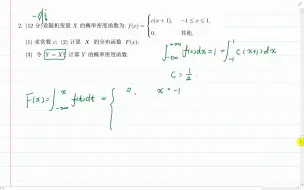 2. (12分)设随机变量 X 的概率密度函数为: f(x) = { c(x+1), -1 ≤ x ≤ 1,
0, 其他.
(1) 求常数 c; (2) 计算 X 的分布函数 F(x);
(3) 令 Y = X², 计算 Y 的概率密度函数
∫_{-∞}^{+∞} f(x)dx = 1 = ∫_{-1}^{1} c(x+1)dx
C = 1/2.
F(x) = ∫_{-∞}^{x} f(t)dt = { 0, x < -1